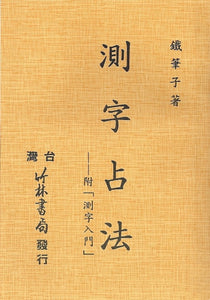 鐵筆子著
測字占法
——附「測字入門」
台灣
竹林書局 發行